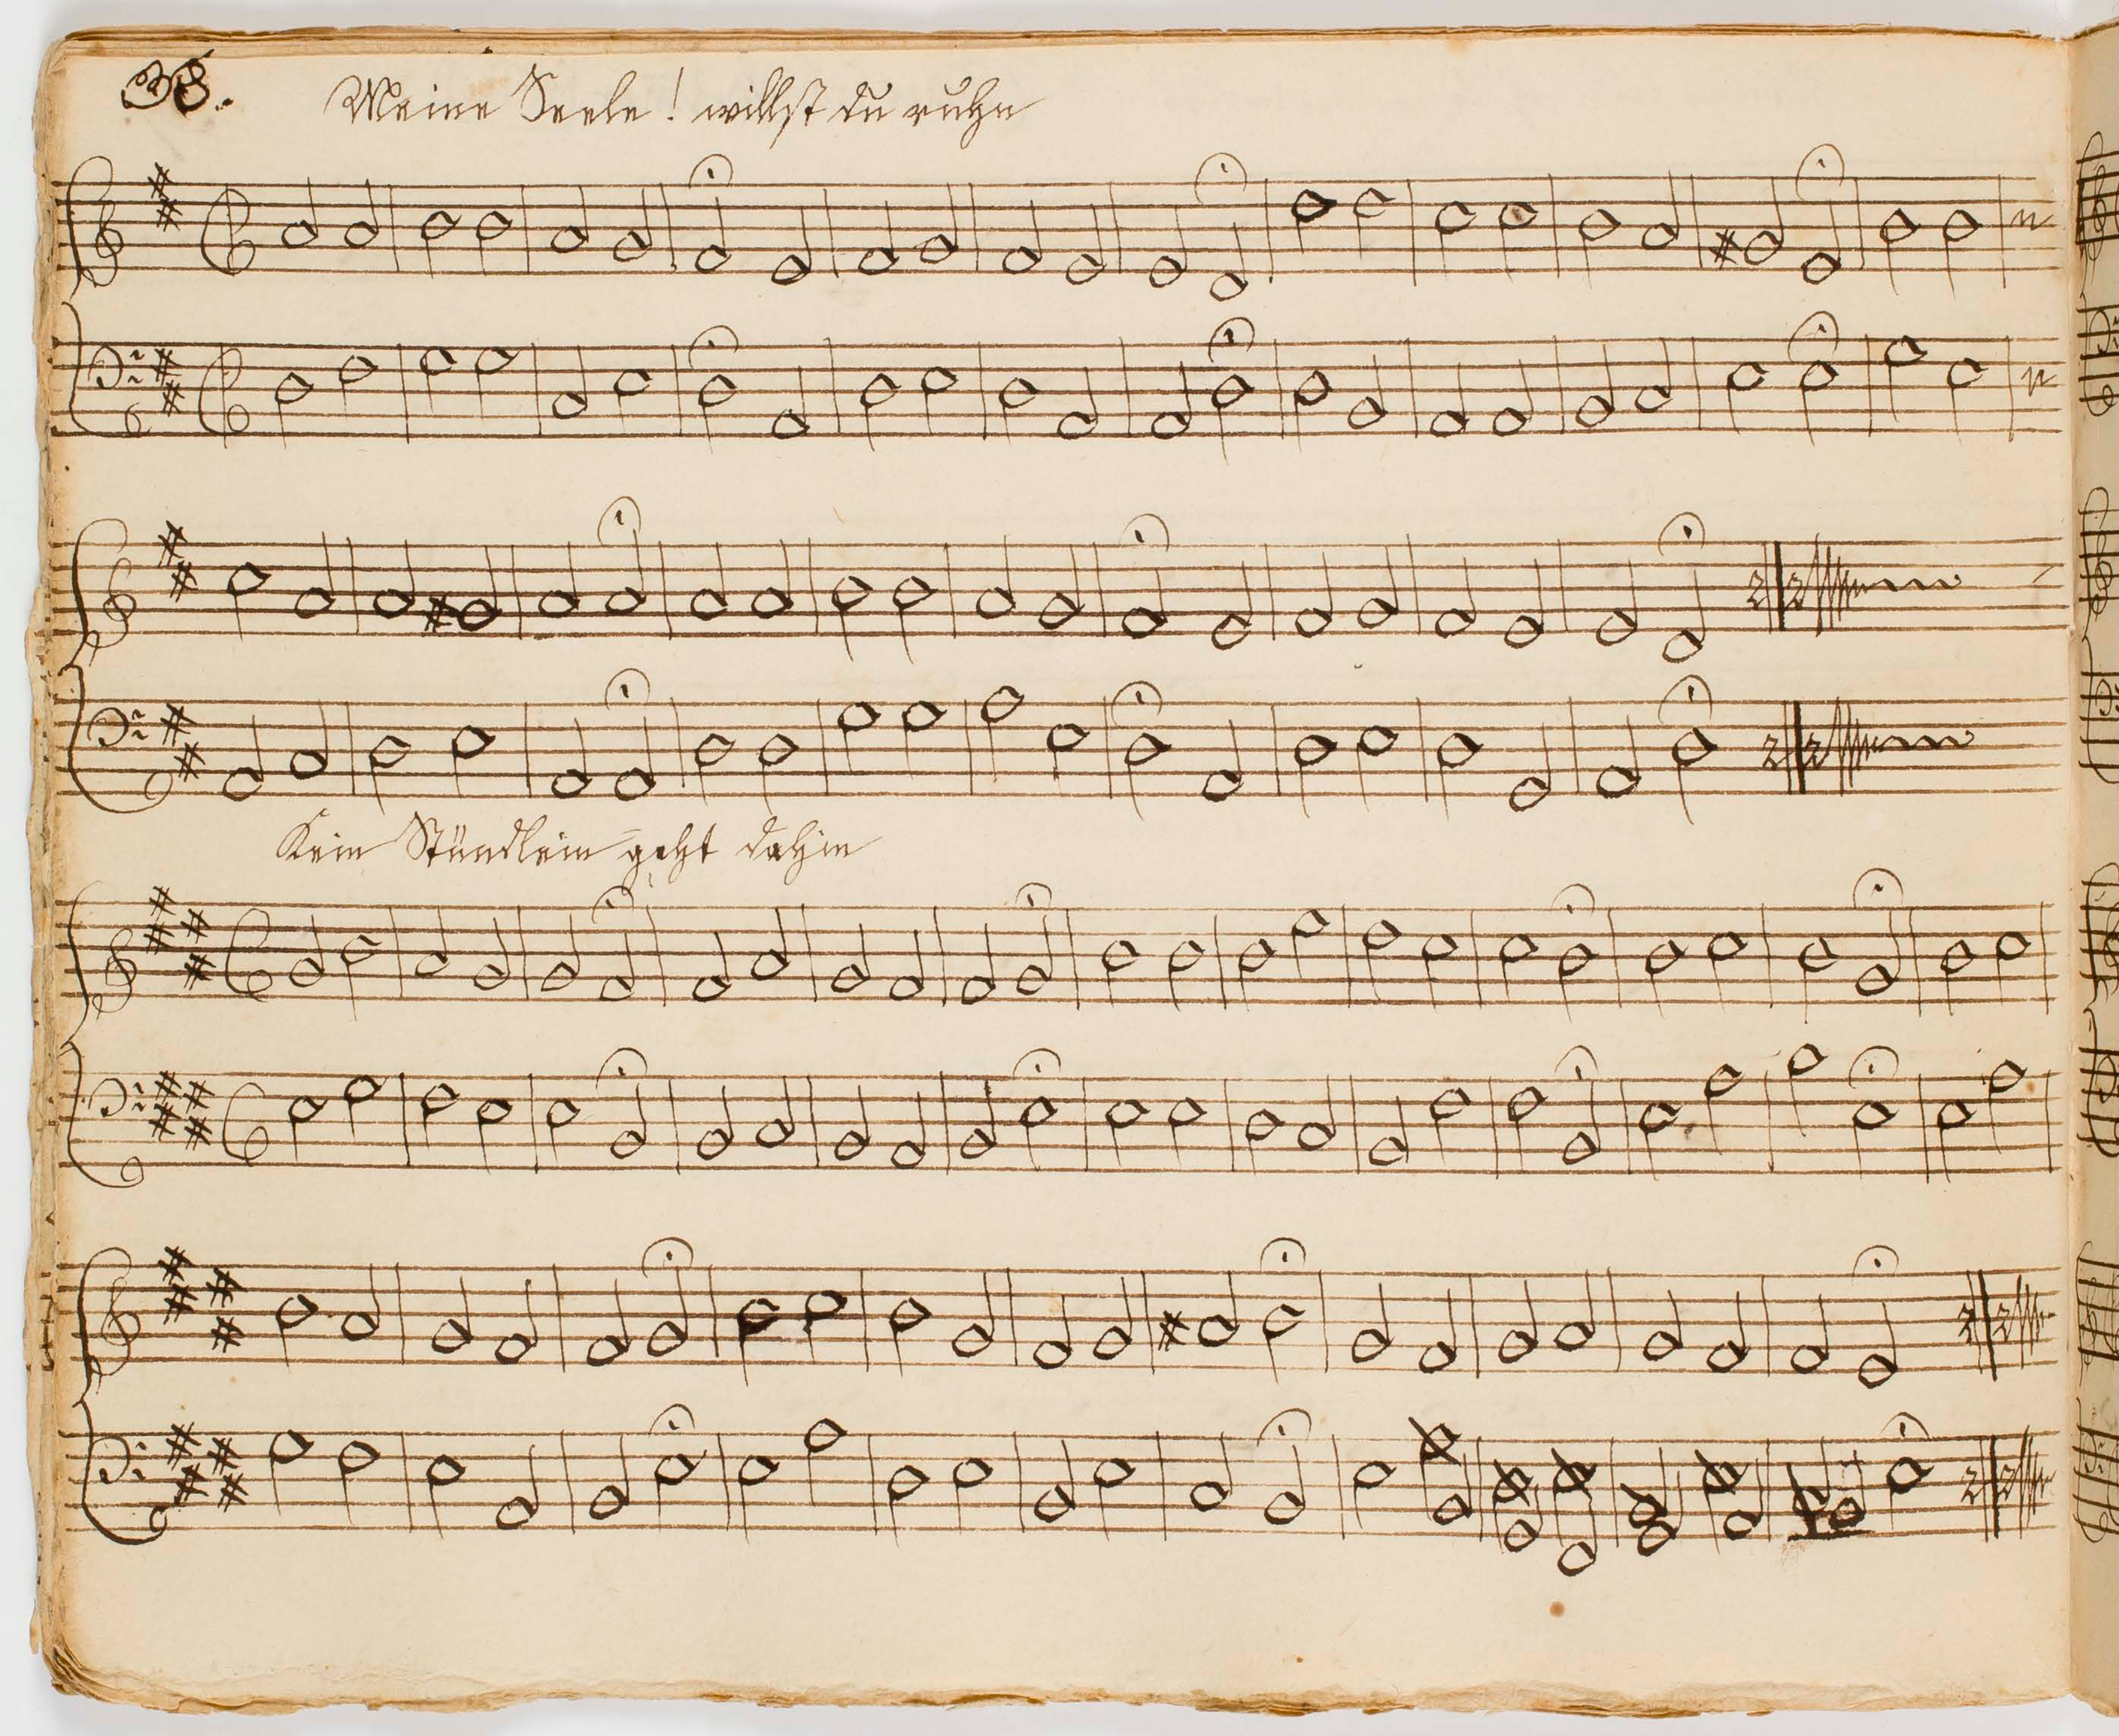 38.
Meine Seele! willst du ruhn
Kein Stündlein geht dahin